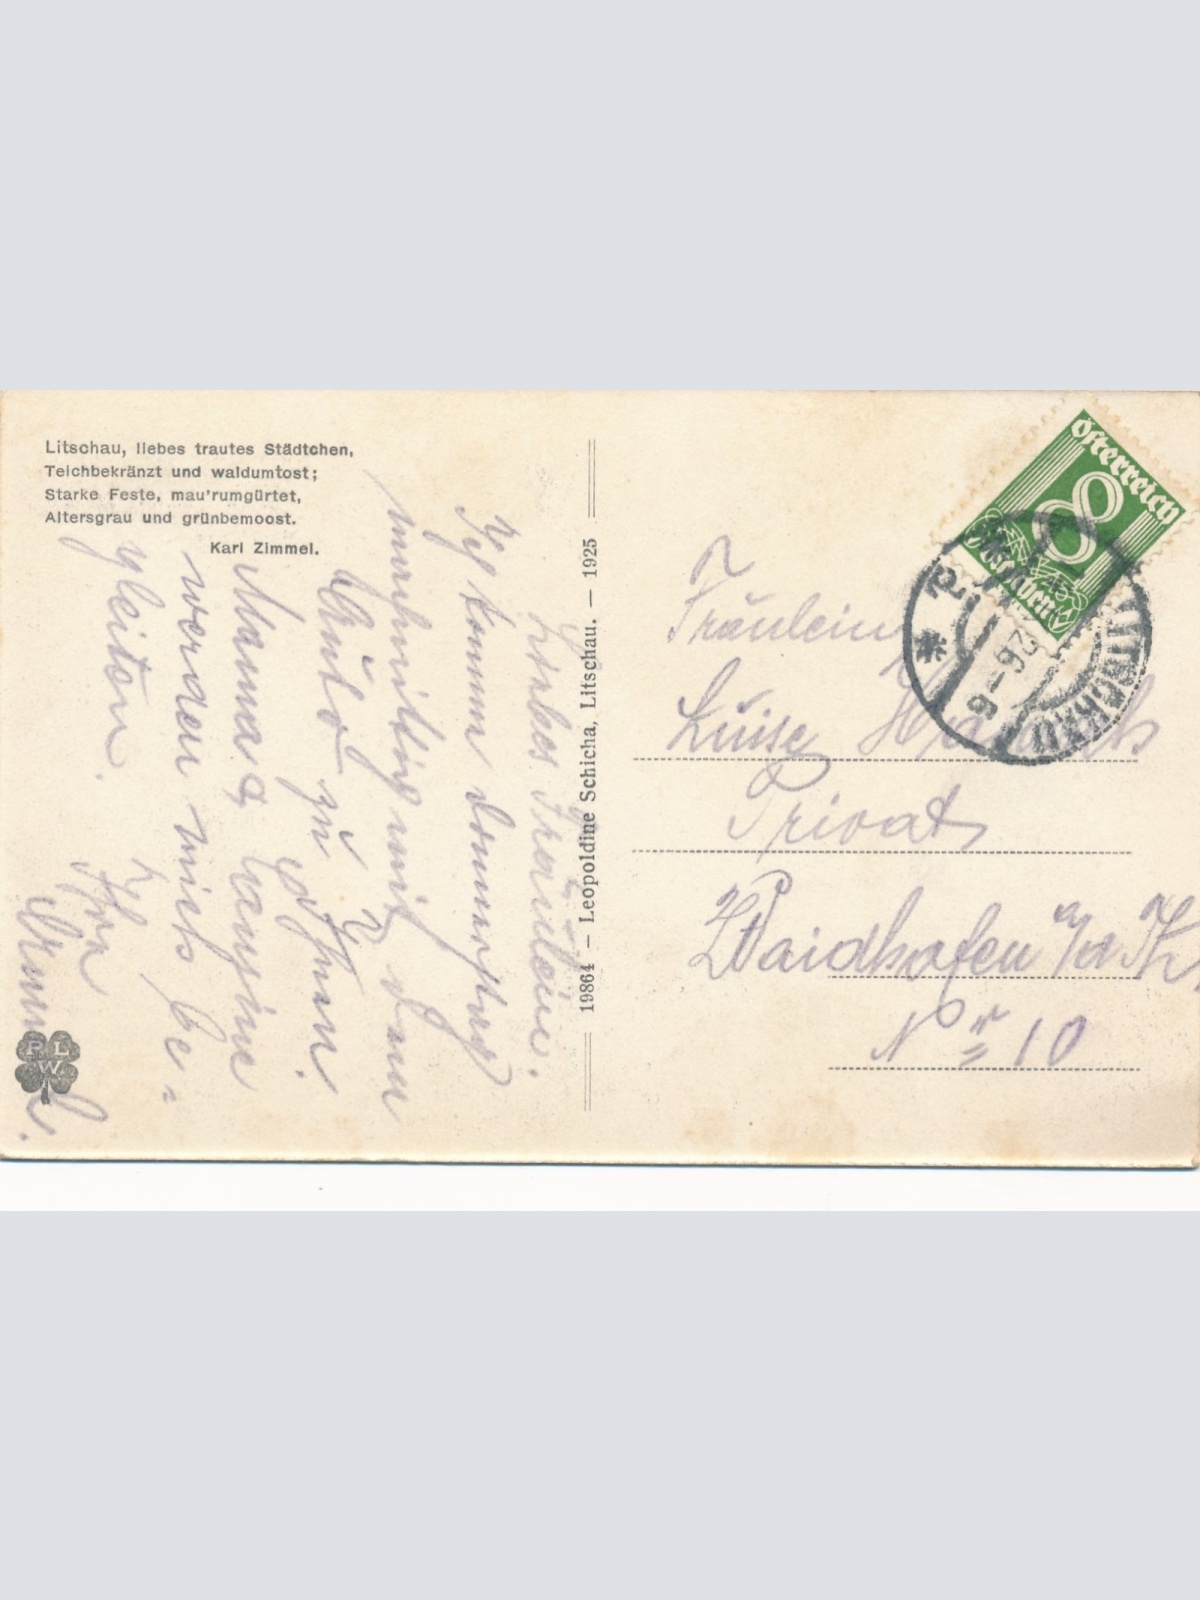 Litschau, liebes trautes Städtchen,
Teichbekränzt und waldumtost;
Starke Feste, mau'rumgürtet,
Altersgrau und grünbemoost.
Karl Zimmel.
Liebes Fräulein.
Ich komme Donnerstag
nachmittag mit dem
Auto zu Ihnen.
Mama &
werden mich be-
gleiten.
Ihr
19864 — Leopoldine Schicha, Litschau. — 1925
Österreich
8
Groschen
LITSCHAU
Fräulein
Luise
Privat
Waidhofen a/d Th
Nr 10
PLW